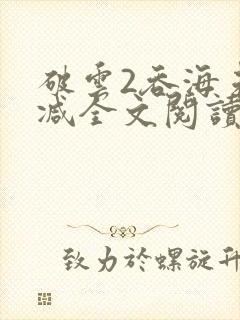 破雲2吞海未
減全文閱讀
致力於螺旋升